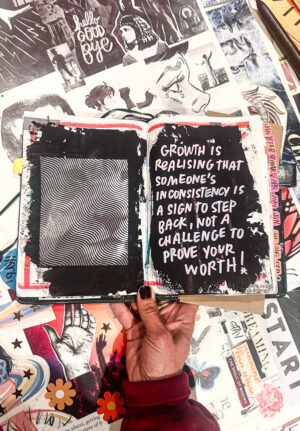 hello
GOOD
bye
GROWTH IS
REALISING THAT
SOMEONE'S
INCONSISTENCY IS
A SIGN TO STEP
BACK, NOT A
CHALLENGE TO
PROVE YOUR
WORTH!
STAR